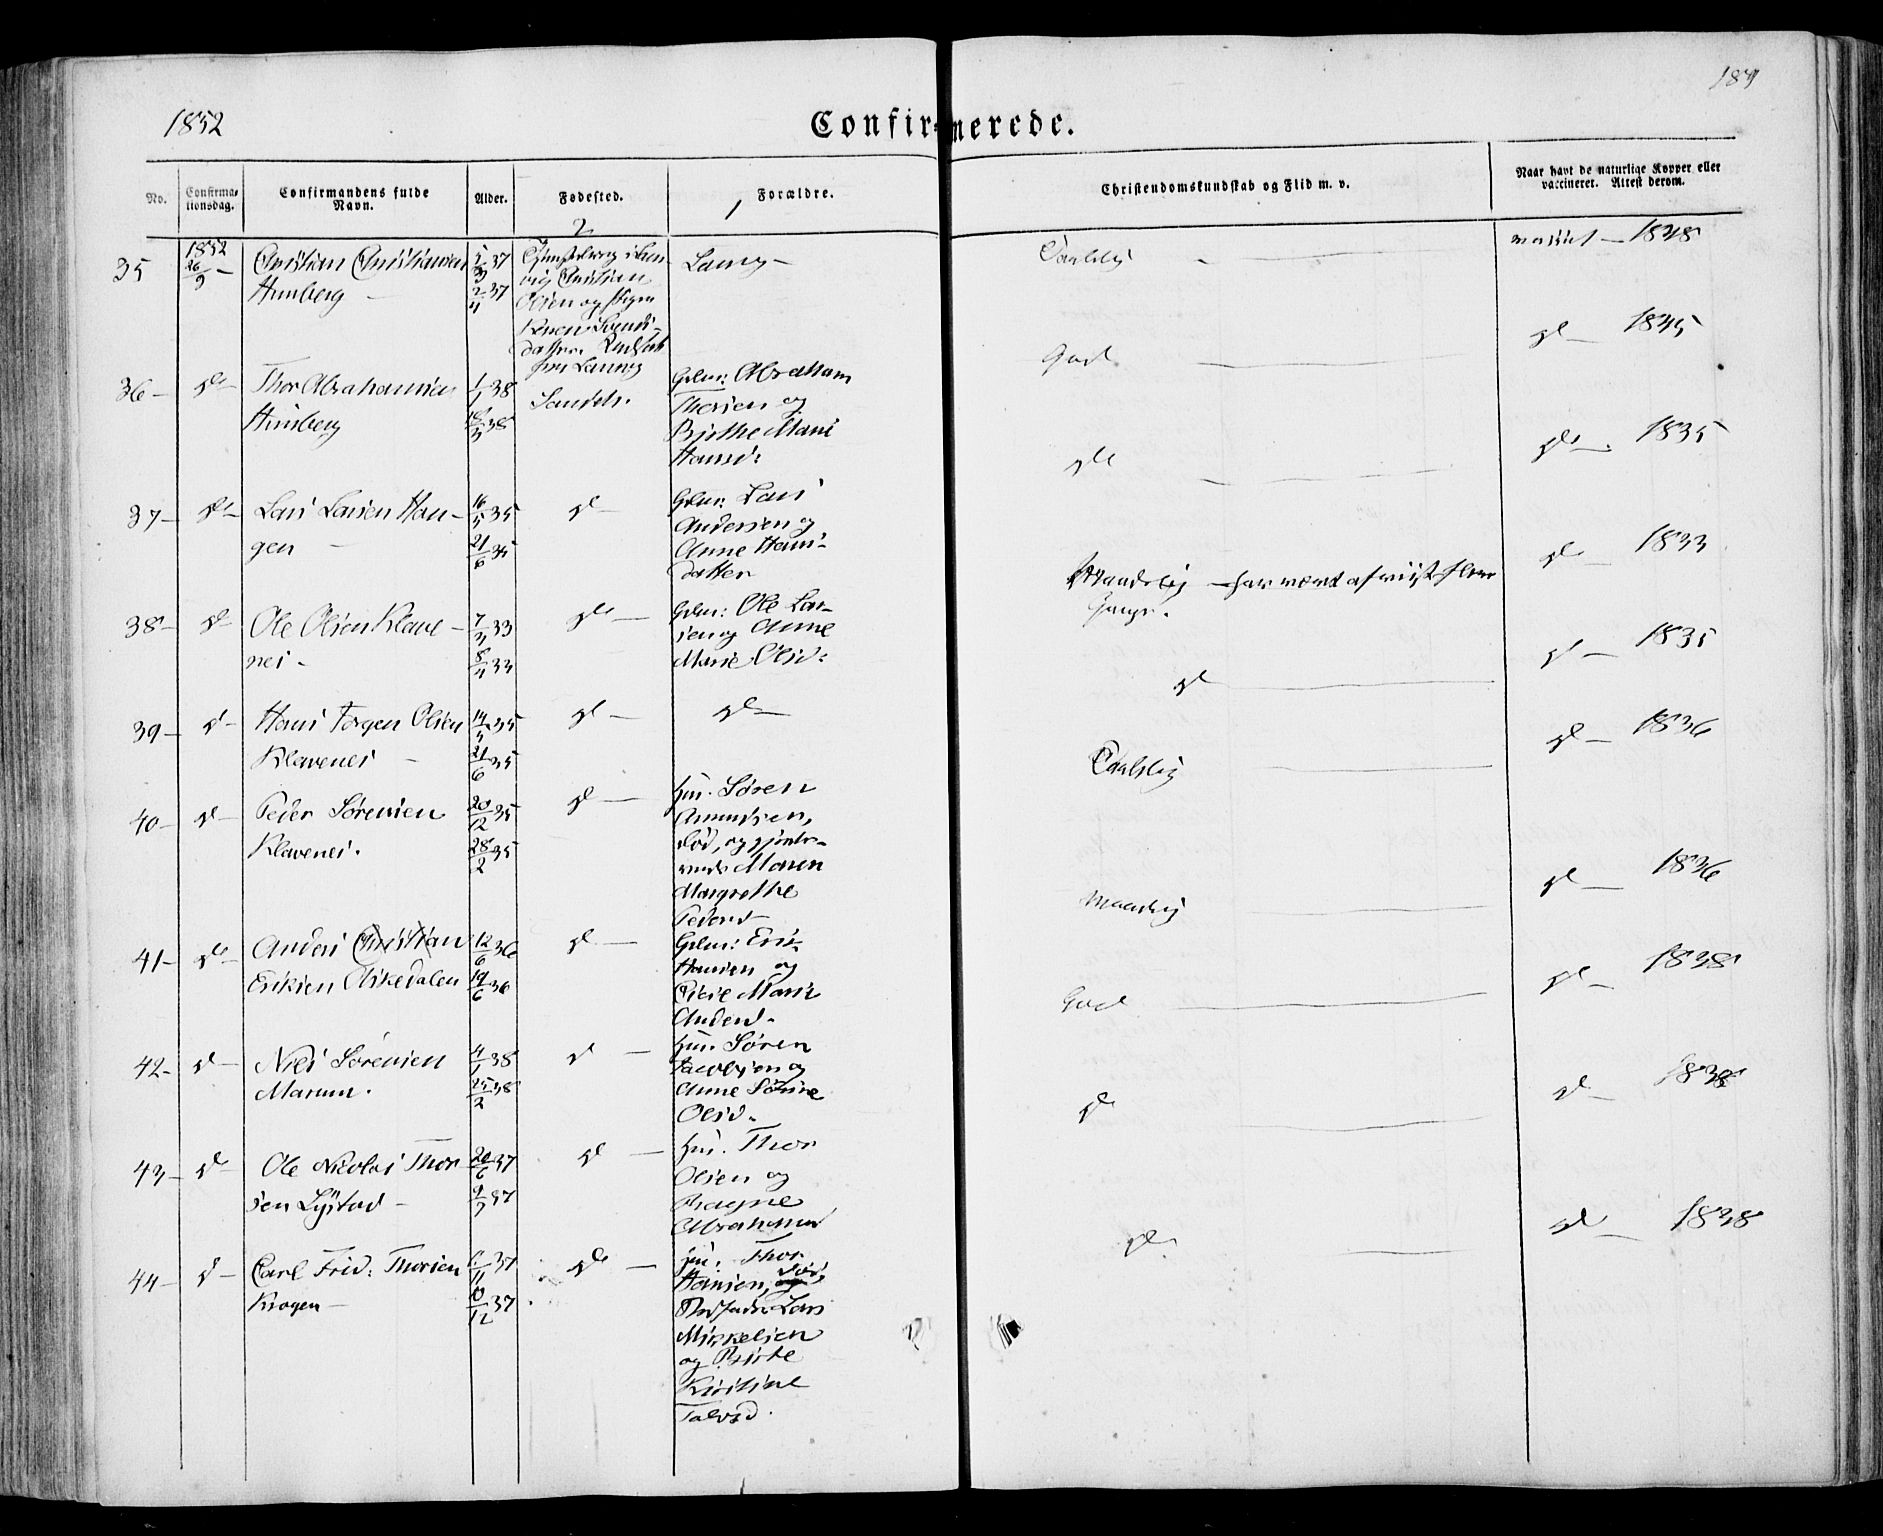 1852
Confirmerede.
No.
Confirma-
tionsdag.
Confirmandens fulde
Navn.
Alder.
Fødested.
Forældre.
Christendomskundskab og Flid m. v.
Naar havt de naturlige Kopper eller
vaccineret. Attest derom.
2
1
35
1852
26/9 -
Christian Christiansen
Himberg -
37
2/4 37
Christian
Olsen og
datter.
Laurv -
Taalelig -
1838
36 -
do
Thor Abrahamsen
Himberg
1/1 38
/3 38
Sandeh.
Gdm: Abraham
Thorsen og
Birthe Marie
Hansd:
God
do 1845
37 -
do -
Lars Larsen Hau-
gen -
16/5 35
21/6 35
do -
Gdm. Lars
Andersen og
Anne Hans-
datter
do
do - 1835
38 -
do
Ole Olsen Klave -
nes -
7/ 33
8/ 33
do -
Gdm: Ole Lar-
sen og Anne
Marie Olsd:
Maadelig - har været afviist flere
Gange.
do 1833
39 -
do -
Hans Jørgen Olsen
Klavenes -
14/5 35
21/6 35
do -
do -
do
do - 1835
40 -
do -
Peder Sørensen
Klavenes.
20/12 35
28/2 35
do -
Huus. Søren
Amundsen,
død, og
Maren
Margrethe
Pedersd
Taalelig
do - 1836
41 -
do -
Anders Christian
Eriksen Askedalen
12/6 36
19/6 36
do -
Gdm: Erik
Hansen og
Marie
Andersd.
Maadelig
do - 1836
42 -
do -
Niels Sørensen
Marum.
4/1 38
25/2 38
do -
Huus. Søren
Jacobsen og
Anne Sørine
Olsd.
God
do - 1838
43 -
do
Ole Nicolai Thor
sen Lystad -
20/6 37
9/7 37
do -
Huus. Thor
Olsen og
Ragne
Abrahamsd
do
do - 1838
44 -
do -
Carl Fred: Thorsen
Krogen -
/11 37
/12 37
do -
Huus. Thor
Hansen, død,
Lars
Mikkelsen
og Birte
Kirstine
do
do - 1838